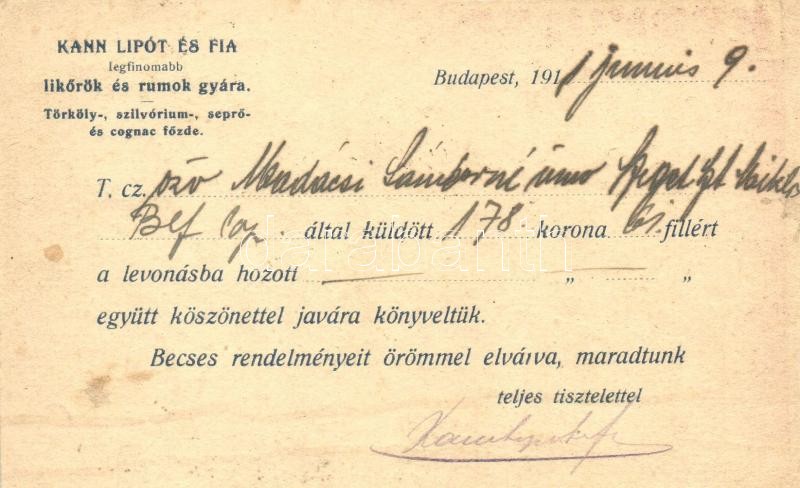 KANN LIPÓT ÉS FIA
legfinomabb
likőrök és rumok gyára.
Törköly-, szilvórium-, seprő-
és cognac főzde.
Budapest, 1911 junius 9.
T. cz. özv Madácsi Sándorné
által küldött 178 korona fillért
a levonásba hozott „ „
együtt köszönettel javára könyveltük.
Becses rendelményeit örömmel elvárva, maradtunk
teljes tisztelettel
darabanth